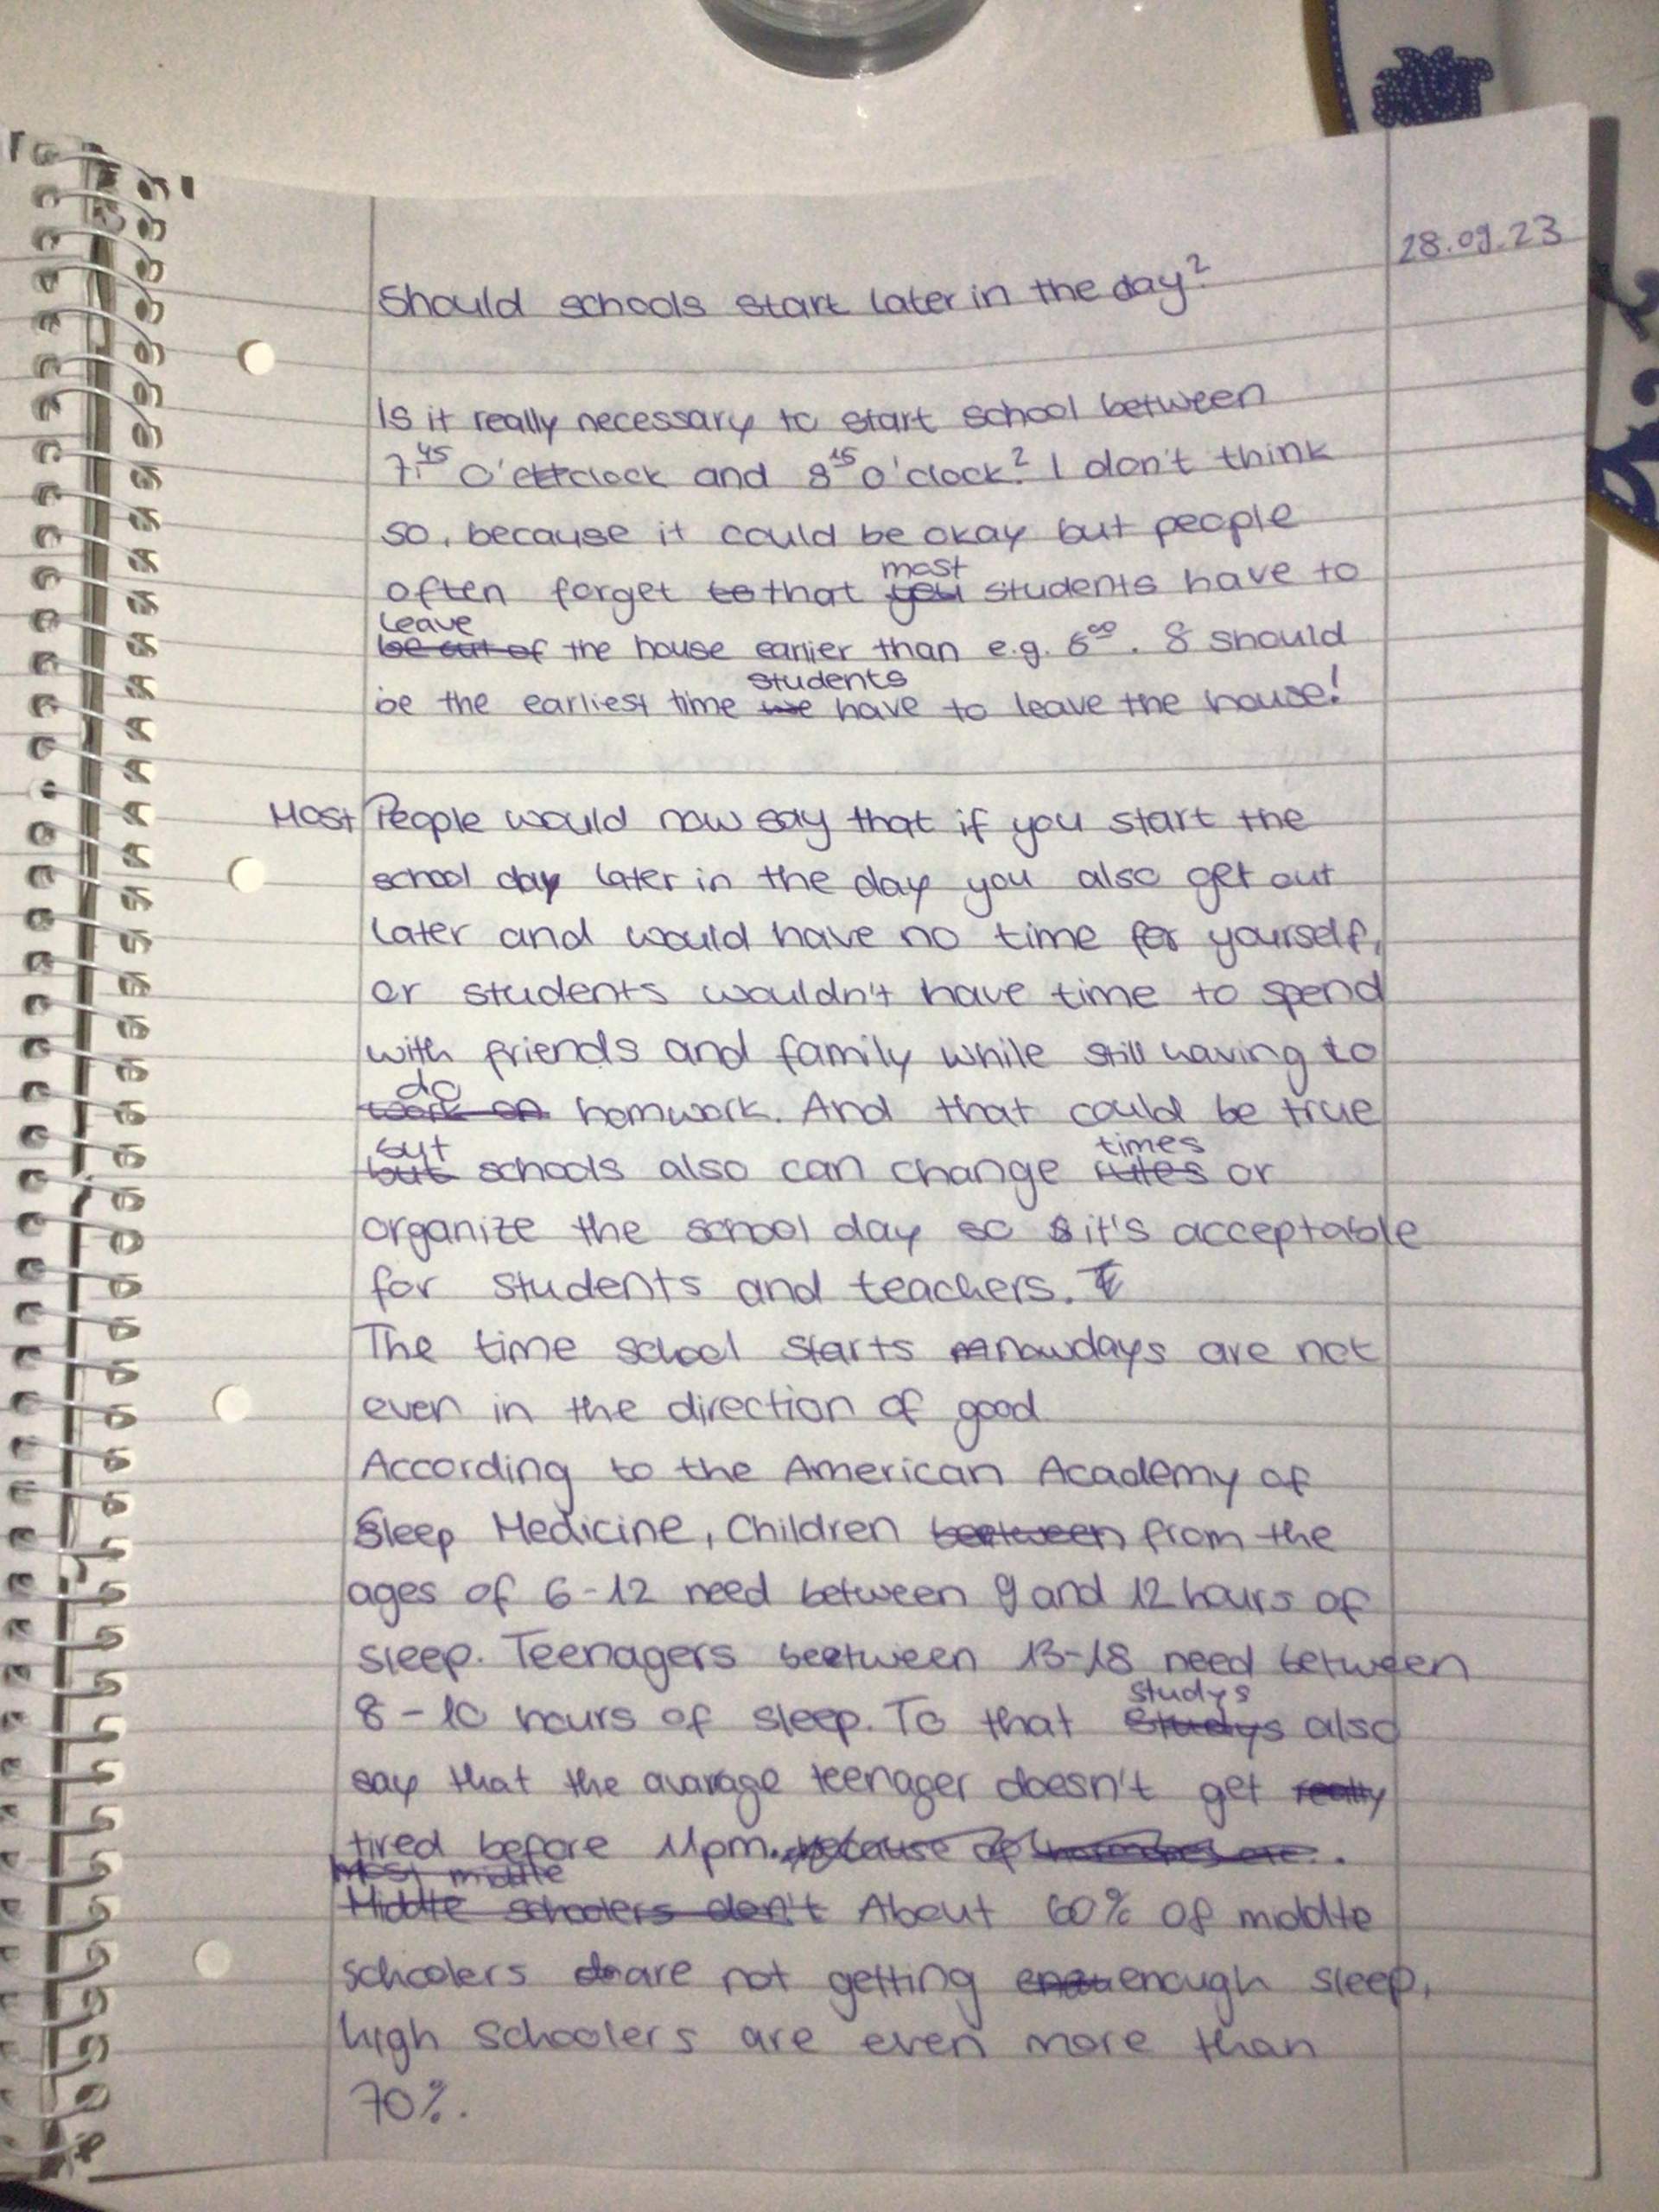 28.09.23
Should schools start later in the day?
Is it really necessary to start school between
7:45 O'clock and 8 15 o'clock? I don't think
so, because it could be okay but people
often forget that most students have to
leave the house earlier than e.g. 6 00. 8 should
be the earliest time students have to leave the house!
Most People would now say that if you start the
school day later in the day you also get out
later and would have no time for yourself,
or students wouldn't have time to spend
with friends and family while still having to
do homwork. And that could be true
but schools also can change times or
organize the school day so it's acceptable
for students and teachers.
The time school starts nowdays are not
even in the direction of good
According to the American Academy of
Sleep Medicine, Children from the
ages of 6-12 need between 9 and 12 hours of
sleep. Teenagers beetween 13-18 need between
8-10 hours of sleep. To that studys also
say that the avarage teenager doesn't get
tired before 11pm.
About 60% of middle
schoolers are not getting enough sleep,
high schoolers are even more than
70%.